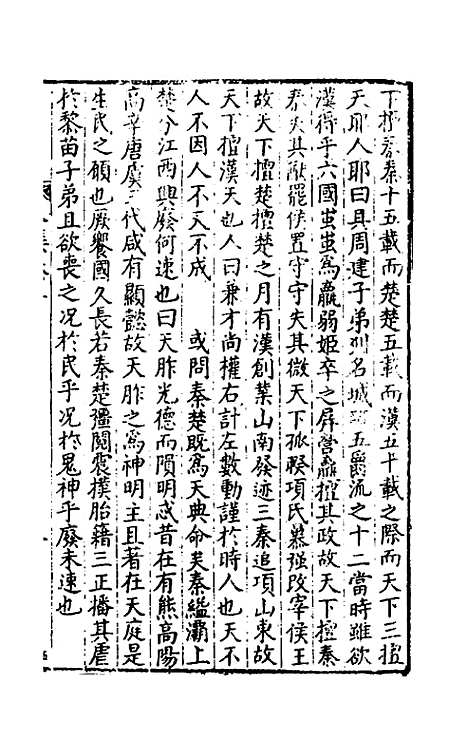 下擅秦秦十五載而楚楚五載而漢五十載之際而天下三擅
天耶人耶曰具周建子弟列名城班五爵流之十二當時雖欲
漢得乎六國蚩蚩為嬴弱姬卒之屏營嬴擅其政故天下擅秦
秦失其猷罷侯置守守失其微天下孤睽項氏暴强改宰侯王
故天下擅楚擅楚之月有漢創業山南發迹三秦追項山東故
天下擅漢天也人曰兼才尚權右計左數動謹於時人也天不
人不因人不天不成 或問秦楚既為天典命矣秦縊灞上
楚分江西興廢何速也曰天胙光德而隕明忒昔在有熊高陽
高辛唐虞三代咸有顯懿故天胙之為神明主且著在天庭是
生民之願也厥饗國久長若秦楚彊鬩震撲胎籍三正播其虐
於黎苗子弟且欲喪之况於民乎况於鬼神乎廢未速也